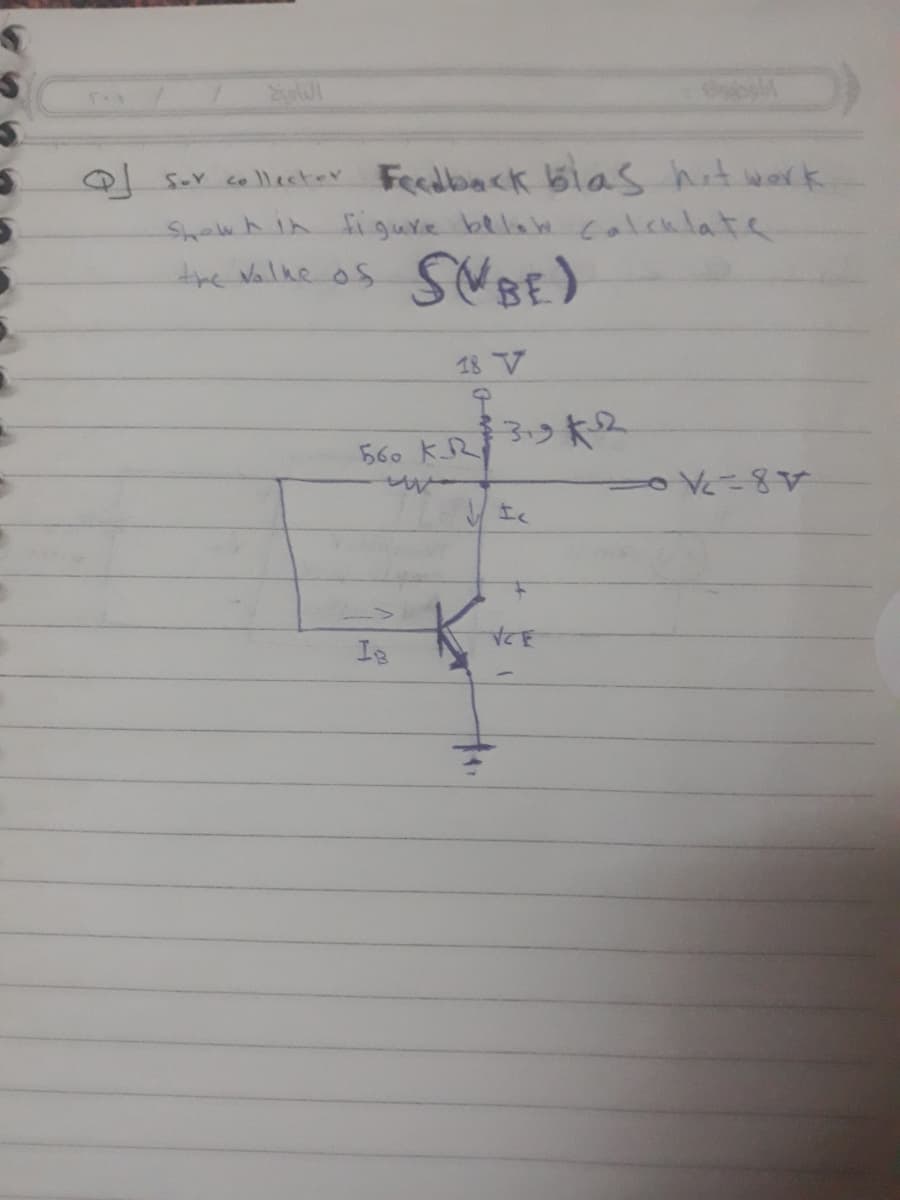 Q] for collector Feedback bias net work
shown in figure below calculate
the value of S(VBE)
18 V
3.9 KΩ
560 KΩ
Vc = 8 V
↓ Ic
+
-->
VCE
IB
-